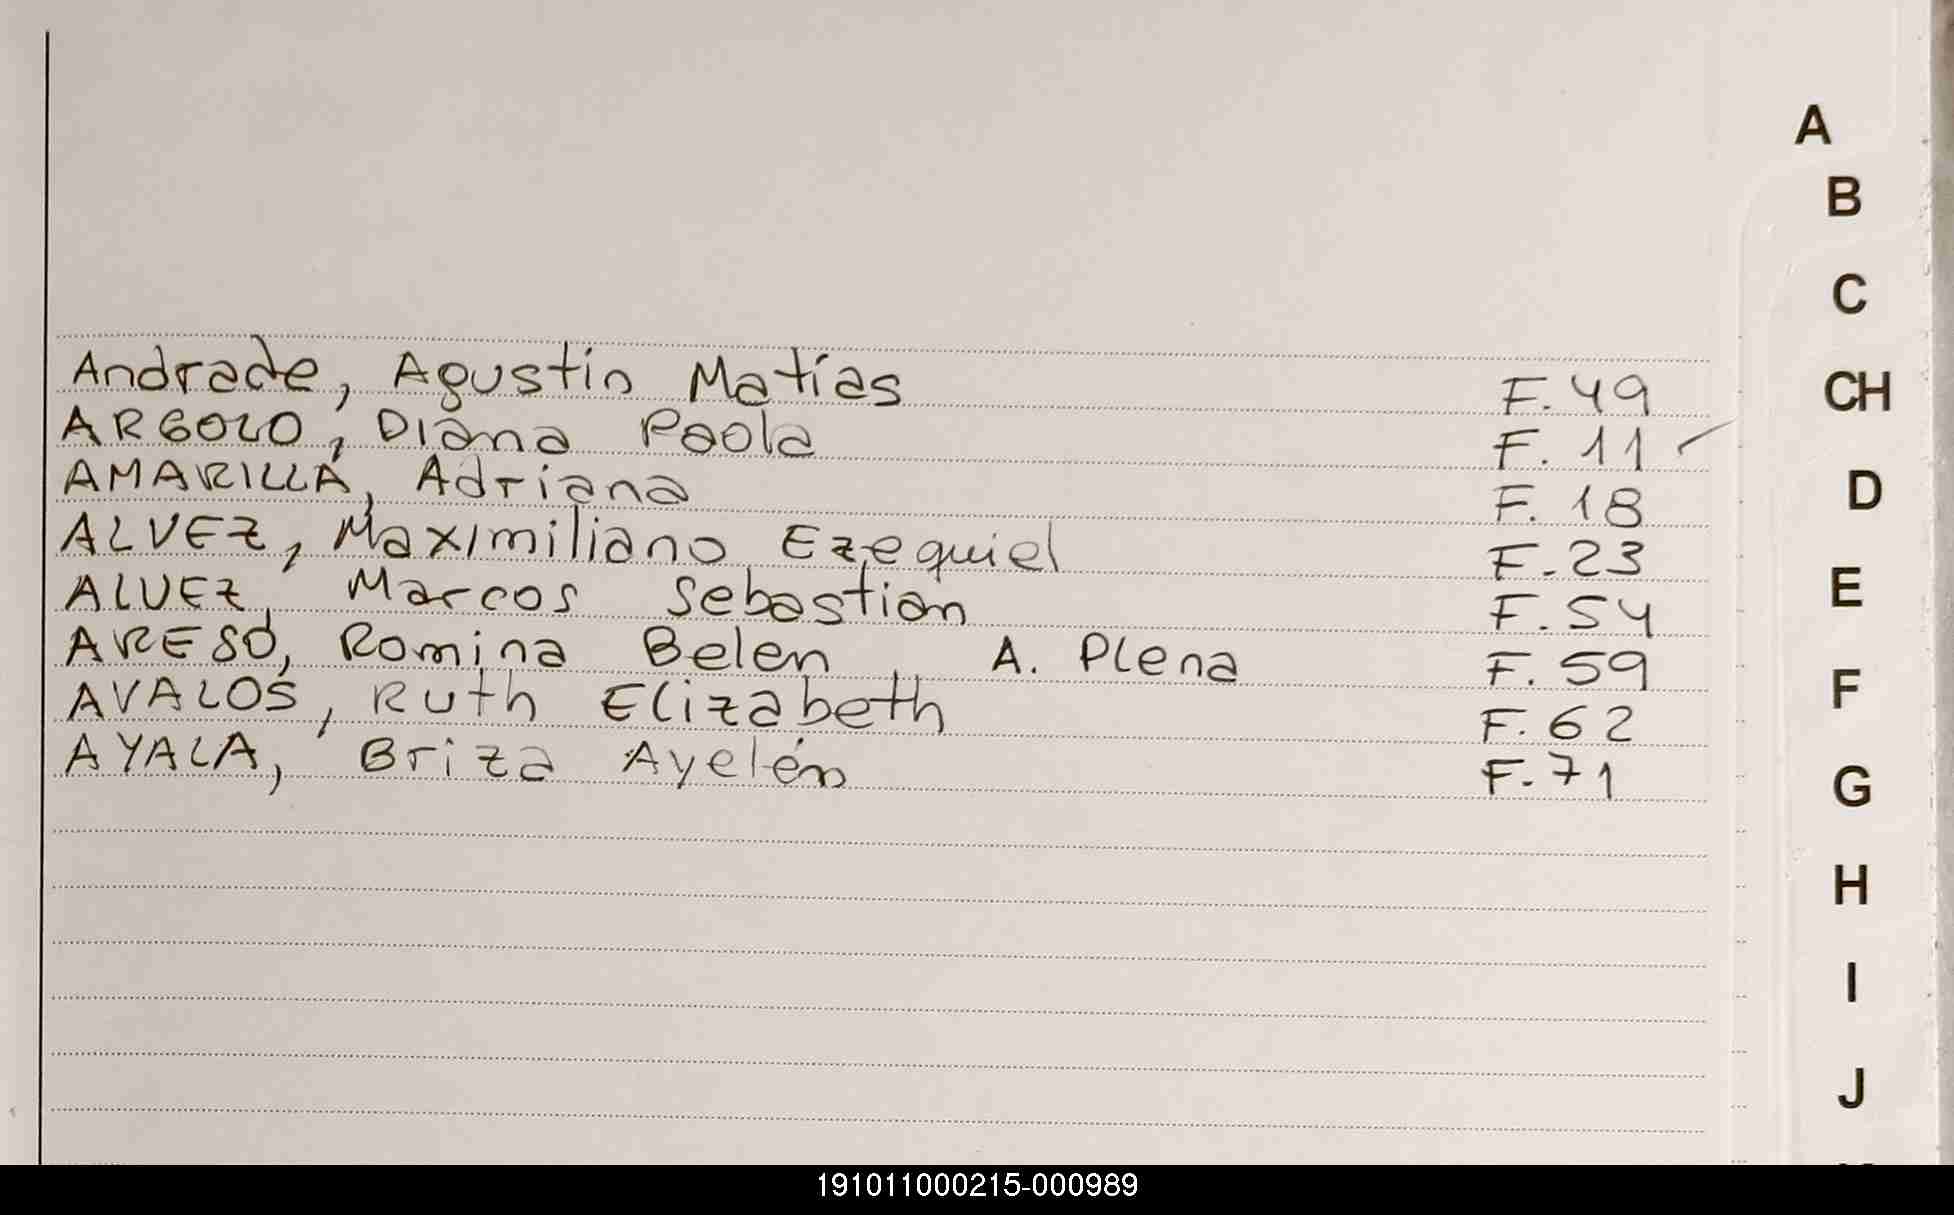 Andrade, Agustin Matías F.49
ARGOLO, Diana Paola F. 11
AMARILLA, Adriana F. 18
ALVEZ, Maximiliano Ezequiel F.23
ALVEZ, Marcos Sebastian F.54
ARESO, Romina Belen A. Plena F. 59
AVALOS, Ruth Elizabeth F. 62
AYALA, Briza Ayelén F.71
A
B
C
CH
D
E
F
G
H
I
J
191011000215-000989